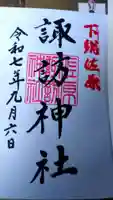 下諏佐原
諏訪神社
令和七年九月六日